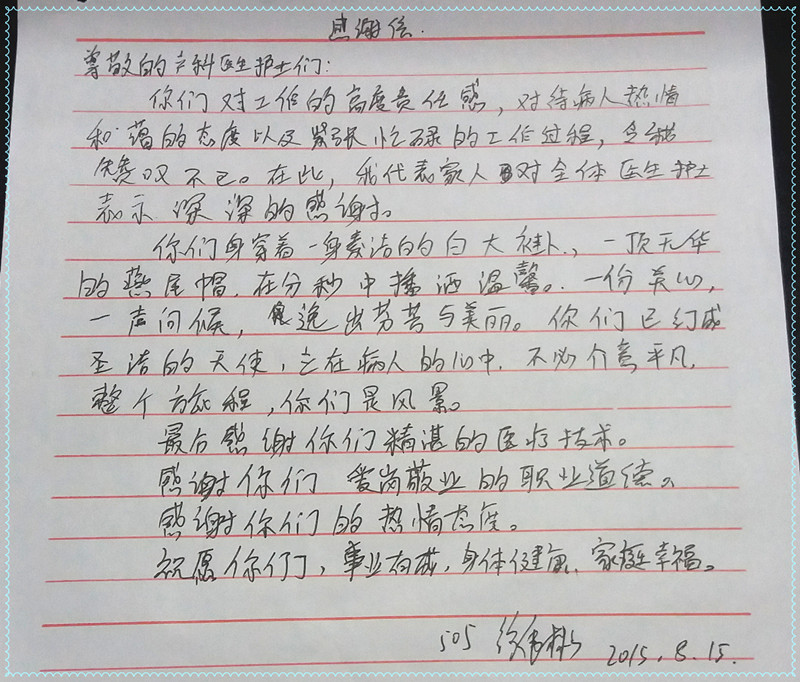 感谢信.
尊敬的产科医生护士们:
你们对工作的高度责任感,对待病人热情
和蔼的态度以及紧张忙碌的工作过程,令我
赞叹不已。在此,我代表家人对全体医生护士
表示深深的感谢。
你们身穿着一身素洁的白大褂、,一顶无华
的燕尾帽.在分秒中播洒温馨。.一份关心,
一声问候,逸出芬芳与美丽。你们已幻成
圣洁的天使,立在病人的心中.不必介意平凡,
整个旅程,你们是风景。
最后感谢你们精湛的医疗技术。
感谢你们 爱岗敬业的职业道德。
感谢你们的热情态度。
祝愿你们,事业有成,身体健康、家庭幸福。
505 徐 2015.8.15.